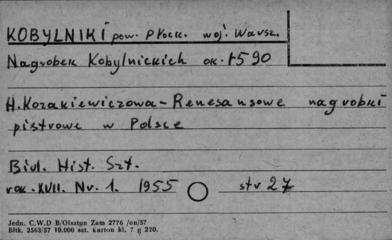 KOBYLNIKI pow. Płock. woj. Warsz.
Nagrobek Kobylnickich ok. 1590
H. Kozakiewiczowa - Renesansowe nagrobki
piętrowe w Polsce
Biul. Hist. Szt.
rok. XVII. Nr. 1. 1955 str 27
Jedn. C.W.D B/Olsztyn Zam 2776 /on/57
Bltk. 2563/57 10.000 szt. karton kl. 7 g 220.